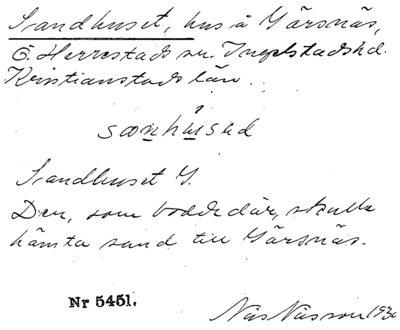 Sandhuset, hus å Gärsnäs,
Ö. Herrestads sn. Ingelstads hd.
Kristianstads län.
sɑnhúsəd
Sandhuset G.
Den, som bodde där, skulle
hämta sand till Gärsnäs.
Nr 5451.
Nils Nilsson 1930